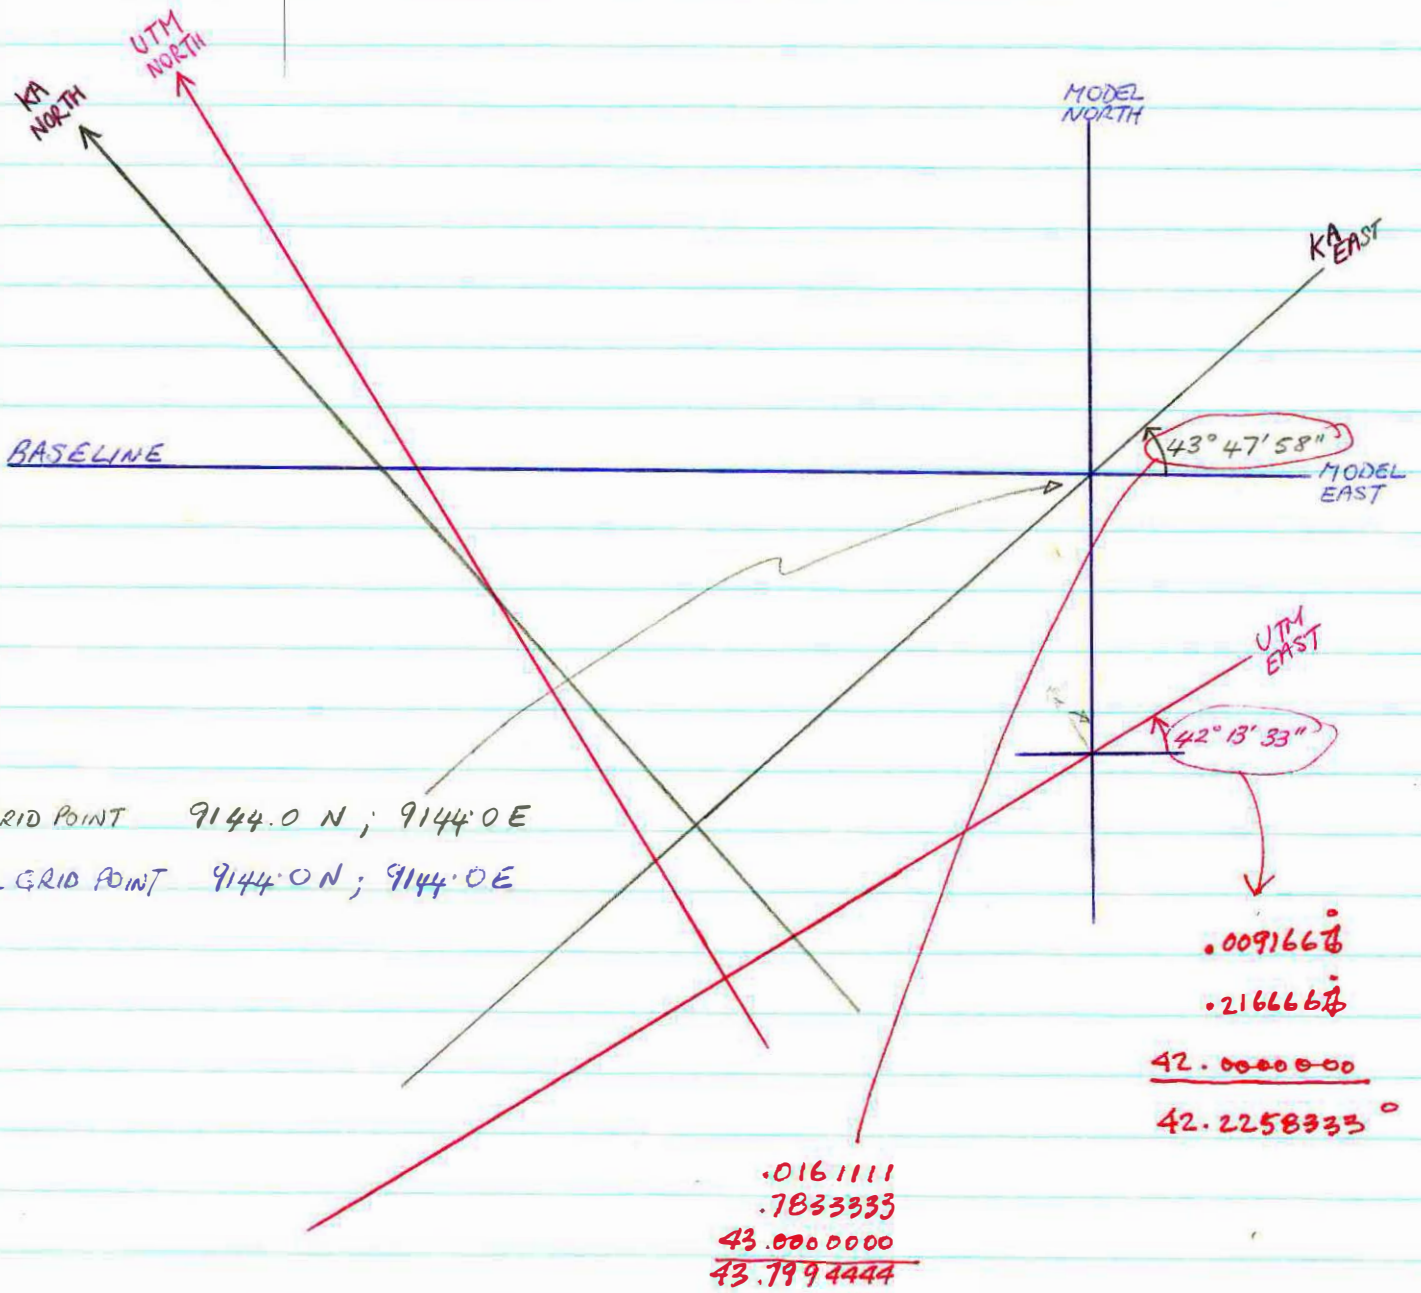 UTM
NORTH
KA
NORTH
MODEL
NORTH
KA
EAST
BASELINE
43° 47' 58"
MODEL
EAST
UTM
EAST
42° 13' 33"
RID POINT 9144.0 N ; 9144.0 E
GRID POINT 9144.0 N ; 9144.0 E
42.0000000
42.2258333°
.0161111
.7833333
43.0000000
43.7994444